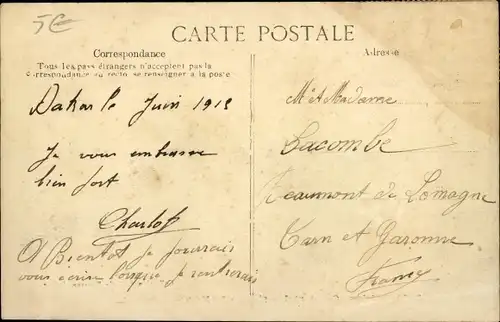 5€
CARTE POSTALE
Correspondance
Tous les pays étrangers n'acceptent pas la
Correspondance au recto, se renseigner à la poste
Dakar le Juin 191
Je vous embrasse
bien fort
Charlot
A Bientôt je pourrais
vous écrire lorsque je rentrerais
Adresse
Mr et Madame
Lacombe
Beaumont de Lomagne
Tarn et Garonne
France